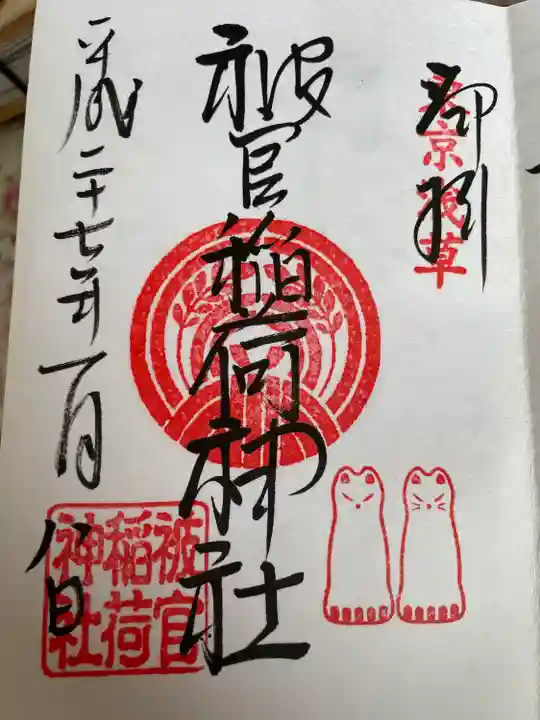 東京浅草
被官稲荷神社
平成二十七年一月八日
被官
稲荷
神社